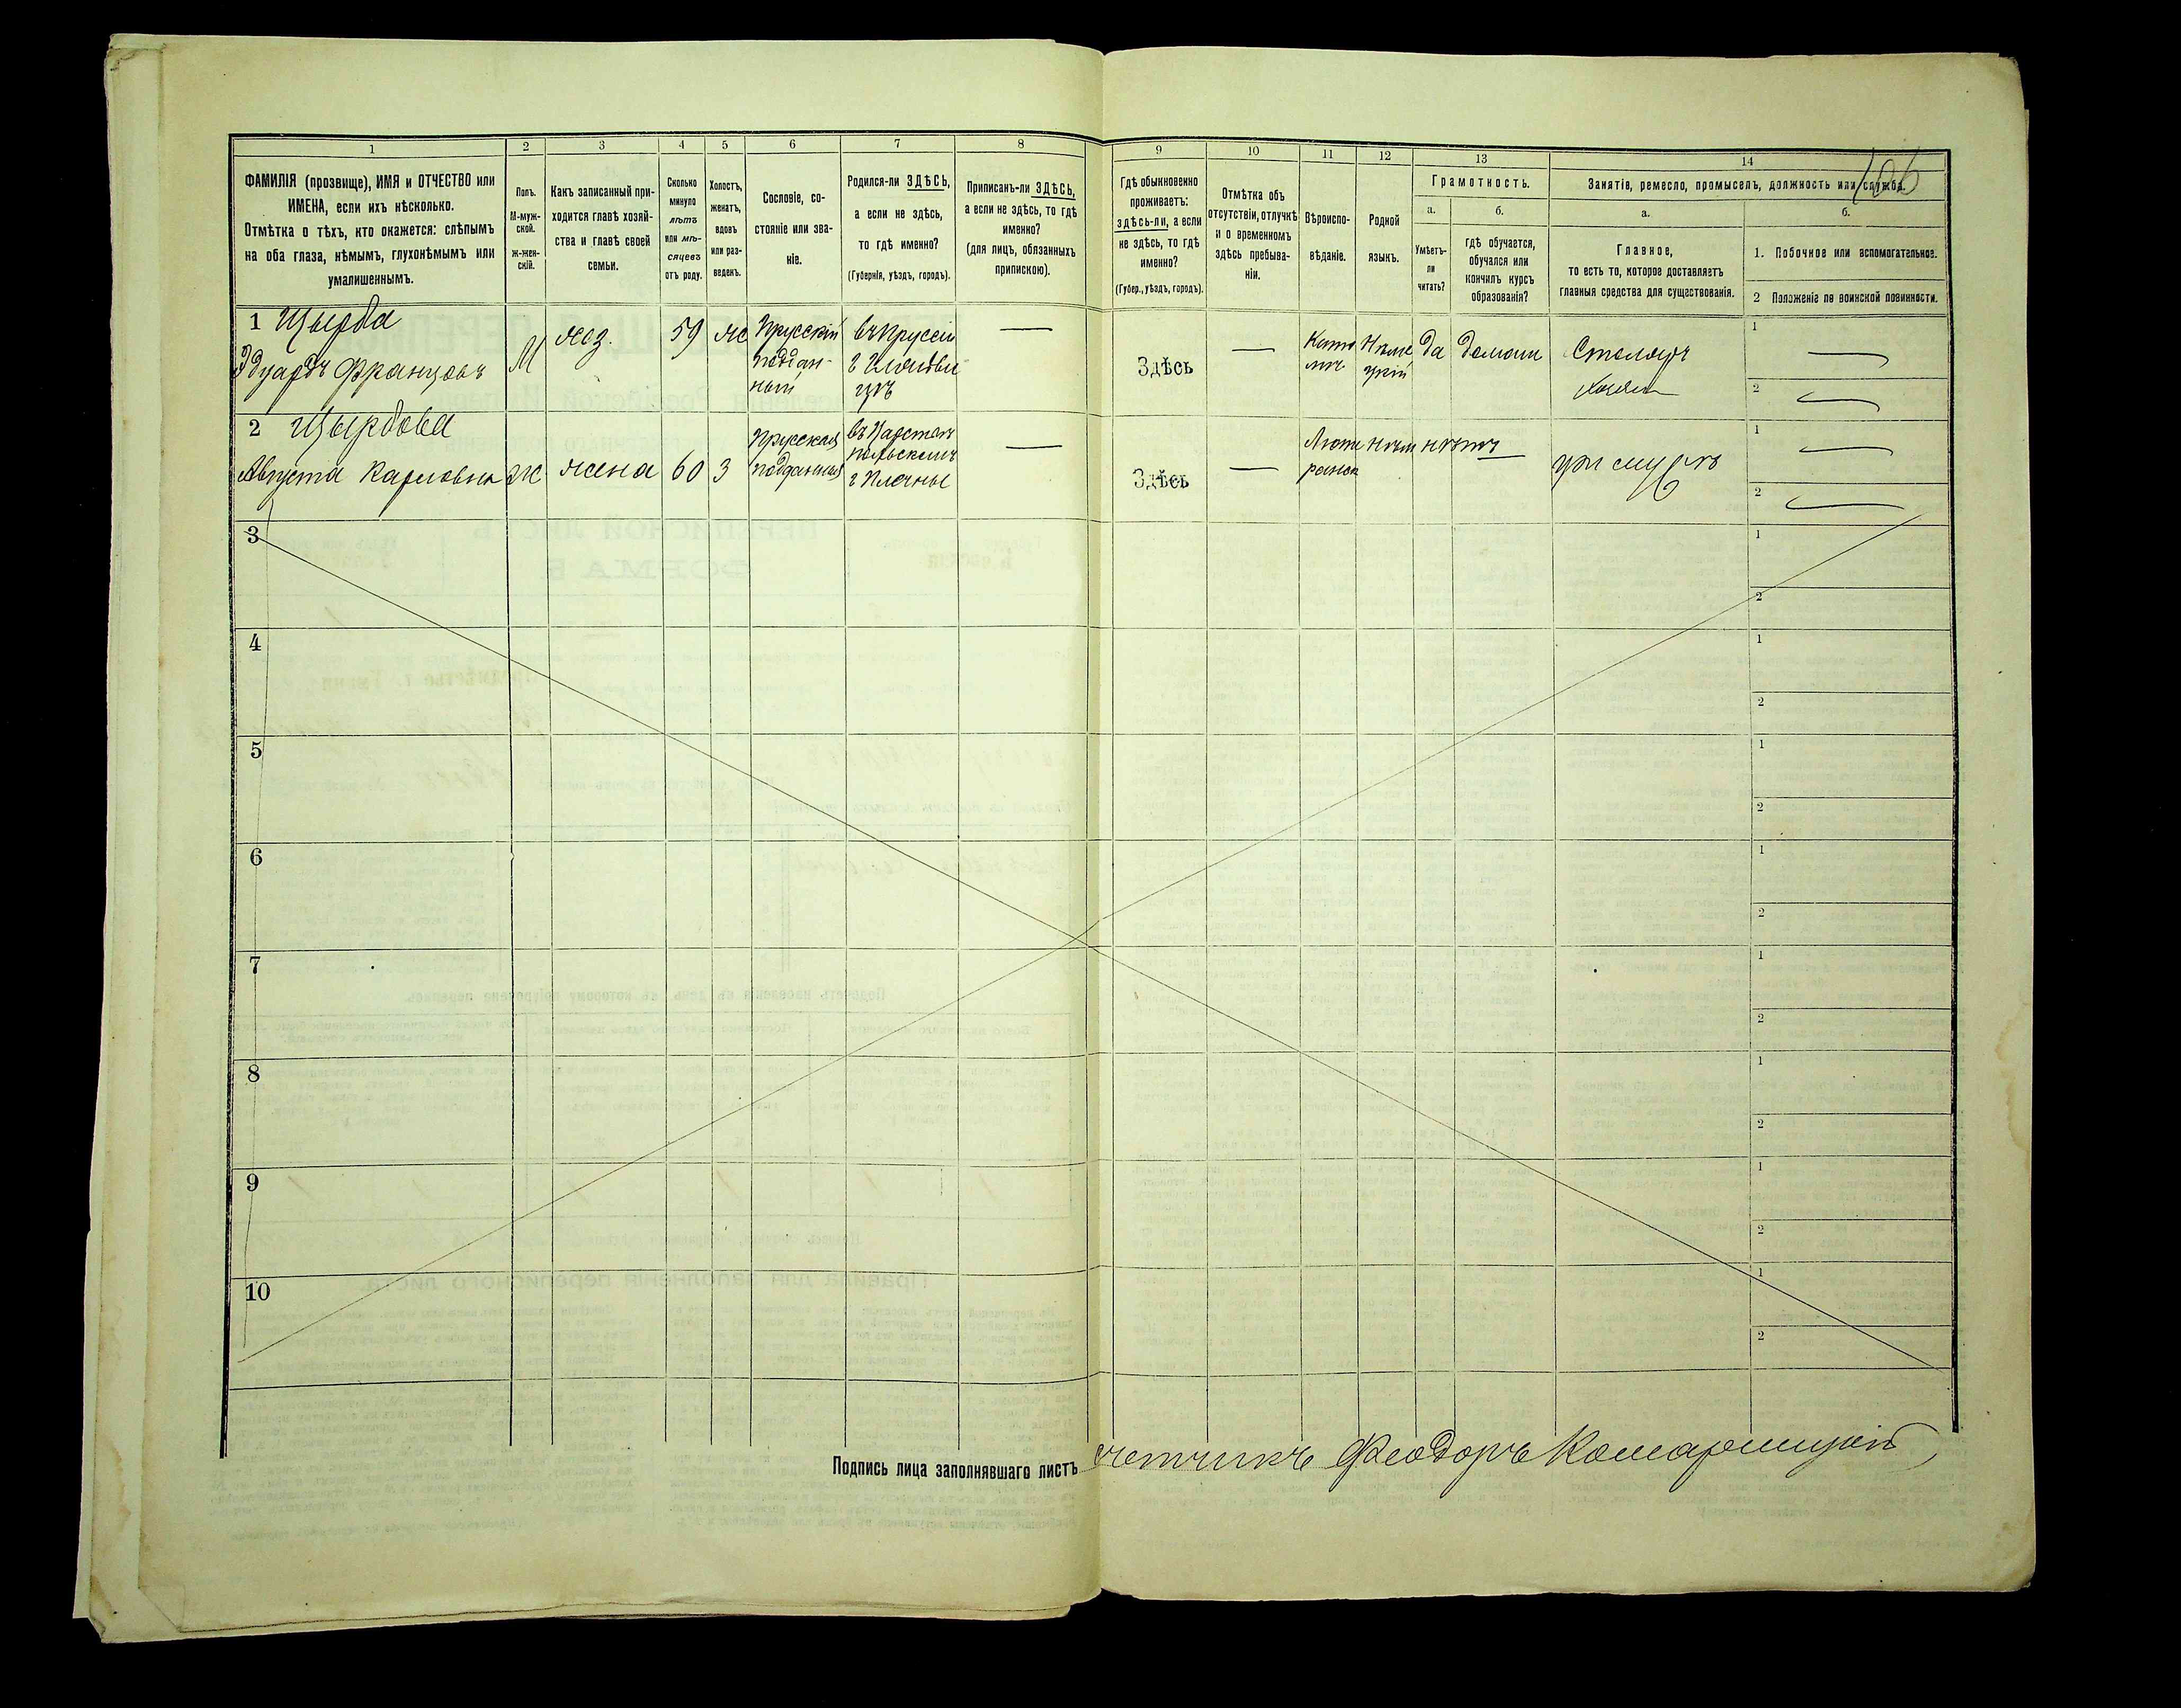 1 2 3 4 5 6 7 8 9 10 11 12 13 14
106
ФАМИЛІЯ (прозвище), ИМЯ и ОТЧЕСТВО или
ИМЕНА, если ихъ нѣсколько.
Отмѣтка о тѣхъ, кто окажется: слѣпымъ
на оба глаза, нѣмымъ, глухонѣмымъ или
умалишеннымъ.
Полъ.
М-муж-
ской.
Ж-жен-
скій.
Какъ записанный при-
ходится главѣ хозяй-
ства и главѣ своей
семьи.
Сколько
минуло
лѣтъ
или мѣ-
сяцевъ
отъ роду.
Холостъ,
женатъ,
вдовъ
или раз-
веденъ.
Сословіе, со-
стояніе или зва-
ніе.
Родился-ли ЗДѢСЬ,
а если не здѣсь,
то гдѣ именно?
(Губернія, уѣздъ, городъ).
Приписанъ-ли ЗДѢСЬ,
а если не здѣсь, то гдѣ
именно?
(для лицъ, обязанныхъ
припискою).
Гдѣ обыкновенно
проживаетъ:
здѣсь-ли, а если
не здѣсь, то гдѣ
именно?
(Губер., уѣздъ, городъ).
Отмѣтка объ
отсутствіи, отлучкѣ
и о временномъ
здѣсь пребыва-
ніи.
Вѣроиспо-
вѣданіе.
Родной
языкъ.
Грамотность.
а.
Умѣетъ-
ли
читать?
б.
гдѣ обучается,
обучался или
кончилъ курсъ
образованія?
Занятіе, ремесло, промыселъ, должность или служба.
а.
Главное,
то есть то, которое доставляетъ
главныя средства для существованія.
б.
1. Побочное или вспомогательное.
2 Положеніе по воинской повинности.
1 Цырба
Эдуардъ Францовъ
М
хоз.
59
ж
Прусскій
поддан-
ный
въ Пруссіи
Здѣсь
Като
Нѣме
цкій
да
дома
Столяръ
1
2
2 Цырбова
Августа Карловна
ж
жена
60
З
Прусская
подданная
въ Царствѣ
Польскомъ
Здѣсь
Люте
ранка
Нѣм
нѣтъ
при мужѣ
1
2
3
1
2
4
1
2
5
1
2
6
1
2
7
1
2
8
1
2
9
1
2
10
1
2
Подпись лица заполнявшаго листъ счетчикъ Феодоръ Комарницкій